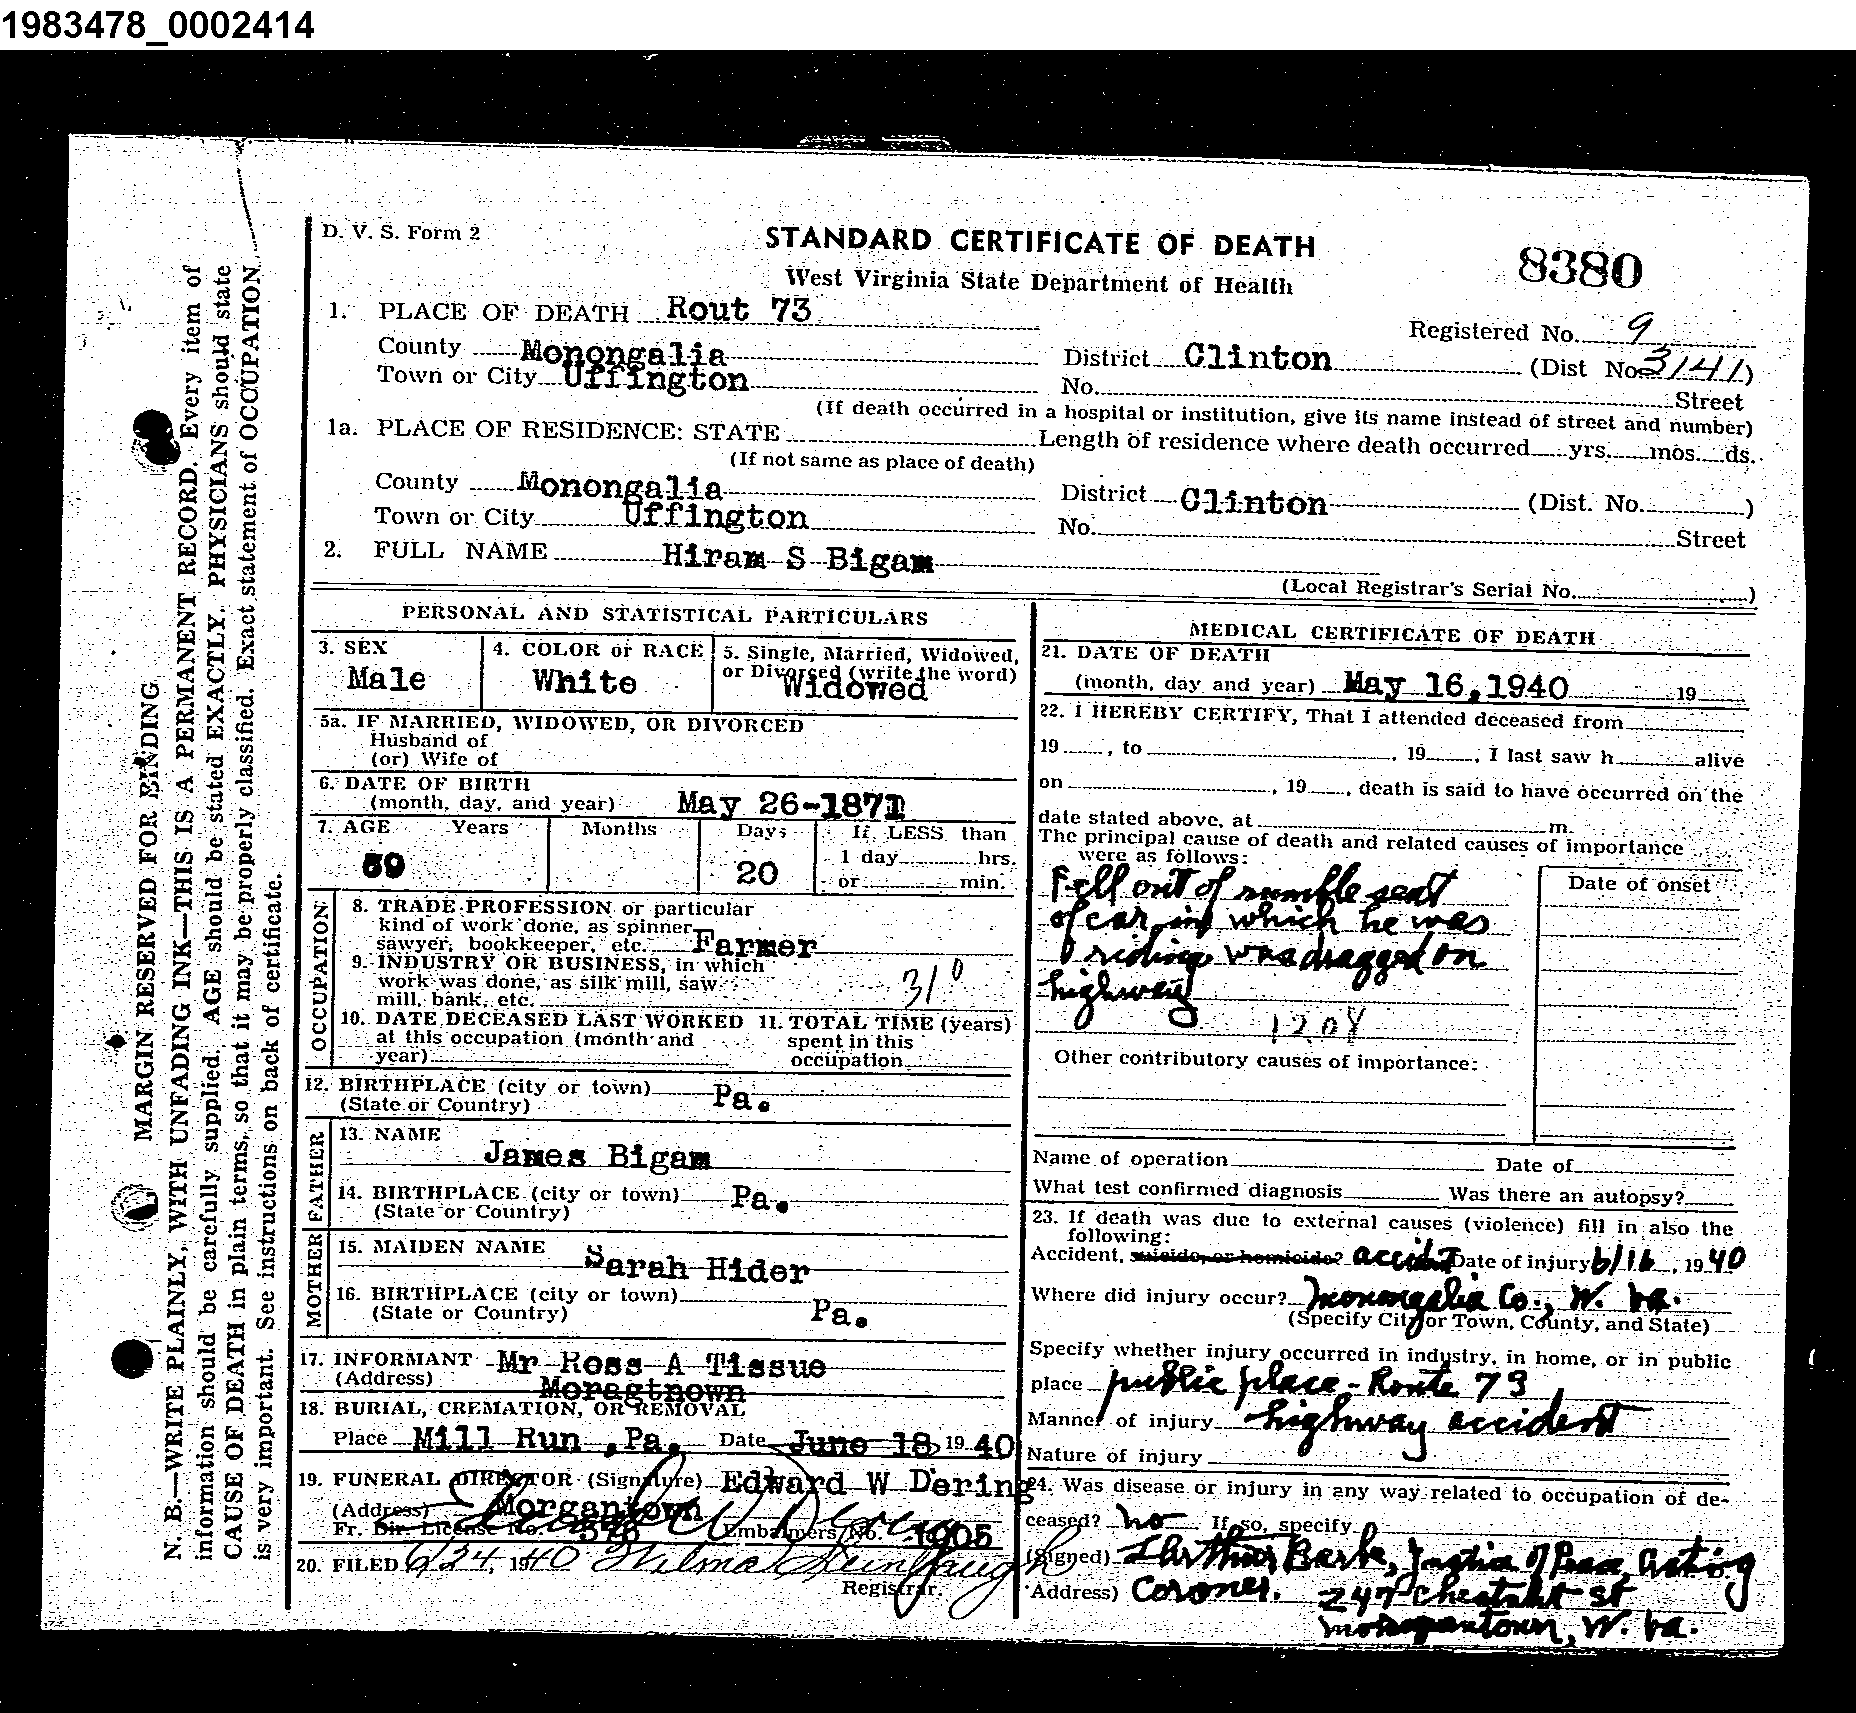 1983478_0002414
D. V. S. Form 2
STANDARD CERTIFICATE OF DEATH
8380
West Virginia State Department of Health
1. PLACE OF DEATH Rout 73
Registered No. 9
County Monongalia District Clinton (Dist No. 3141)
Town or City Uffington No. Street
(If death occurred in a hospital or institution, give its name instead of street and number)
1a. PLACE OF RESIDENCE: STATE Length of residence where death occurred yrs. mos. ds.
(If not same as place of death)
County Monongalia District Clinton (Dist. No. )
Town or City Uffington No. Street
2. FULL NAME Hiram S Bigam
(Local Registrar's Serial No. )
PERSONAL AND STATISTICAL PARTICULARS
3. SEX
Male
4. COLOR or RACE
White
5. Single, Married, Widowed,
or Divorced (write the word)
Widowed
5a. IF MARRIED, WIDOWED, OR DIVORCED
Husband of
(or) Wife of
6. DATE OF BIRTH
(month, day, and year) May 26-1871
7. AGE Years Months Days If LESS than
20 1 day hrs.
or min.
OCCUPATION
8. TRADE PROFESSION or particular
kind of work done, as spinner
sawyer, bookkeeper, etc. Farmer
9. INDUSTRY OR BUSINESS, in which
work was done, as silk mill, saw
mill, bank, etc.
310
10. DATE DECEASED LAST WORKED 11. TOTAL TIME (years)
at this occupation (month and spent in this
year) occupation
12. BIRTHPLACE (city or town) Pa.
(State or Country)
FATHER
13. NAME
James Bigam
14. BIRTHPLACE (city or town) Pa.
(State or Country)
MOTHER
15. MAIDEN NAME Sarah Hider
16. BIRTHPLACE (city or town)
(State or Country) Pa.
17. INFORMANT Mr Ross A Tissue
(Address) Moragtnown
18. BURIAL, CREMATION, OR REMOVAL
Place Mill Run ,Pa. Date June 18, 19 40
19. FUNERAL DIRECTOR (Signature) Edward W Dering
(Address) Morgantown
Fr. Dir. License No. 576 Embalmers No. 1905
20. FILED 6 24, 1940 Wilma
Registrar.
MEDICAL CERTIFICATE OF DEATH
21. DATE OF DEATH
(month, day and year) May 16,1940 19
22. I HEREBY CERTIFY, That I attended deceased from
19 , to , 19 , I last saw h alive
on , 19 , death is said to have occurred on the
date stated above, at m.
The principal cause of death and related causes of importance
were as follows:
Date of onset
Fell out of rumble seat
of car in which he was
riding was dragged on
highway
1208
Other contributory causes of importance:
Name of operation Date of
What test confirmed diagnosis Was there an autopsy?
23. If death was due to external causes (violence) fill in also the
following:
Accident, suicide, or homicide? accident Date of injury 6/16, 1940
Where did injury occur? Monongalia Co., W. Va.
(Specify City or Town, County, and State)
Specify whether injury occurred in industry, in home, or in public
place public place - Route 73
Manner of injury highway accident
Nature of injury
24. Was disease or injury in any way related to occupation of de-
ceased? no If so, specify
(Signed) Barbe, Justice of Peace, Acting
Address) Coroner. 247 Chestnut St
Morgantown, W. Va.
MARGIN RESERVED FOR BINDING
N. B.—WRITE PLAINLY, WITH UNFADING INK—THIS IS A PERMANENT RECORD. Every item of
information should be carefully supplied. AGE should be stated EXACTLY. PHYSICIANS should state
CAUSE OF DEATH in plain terms, so that it may be properly classified. Exact statement of OCCUPATION
is very important. See instructions on back of certificate.